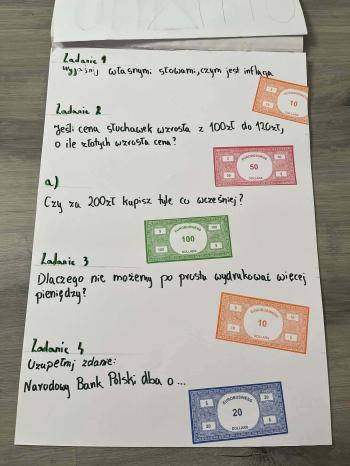 Zadanie 1
Wyjaśnij własnymi słowami, czym jest inflacja
10
Zadanie 2
Jeśli cena słuchawek wzrosła z 100zł do 120zł,
o ile złotych wzrosła cena?
50
DOLLARS
a)
Czy za 200zł kupisz tyle co wcześniej?
EUROBUSINESS
100
DOLLARS
Zadanie 3
Dlaczego nie możemy po prostu wydrukować więcej
pieniędzy?
EUROBUSINESS
10
DOLLARS
Zadanie 4
Uzupełnij zdanie:
Narodowy Bank Polski dba o...
EUROBUSINESS
20
DOLLARS